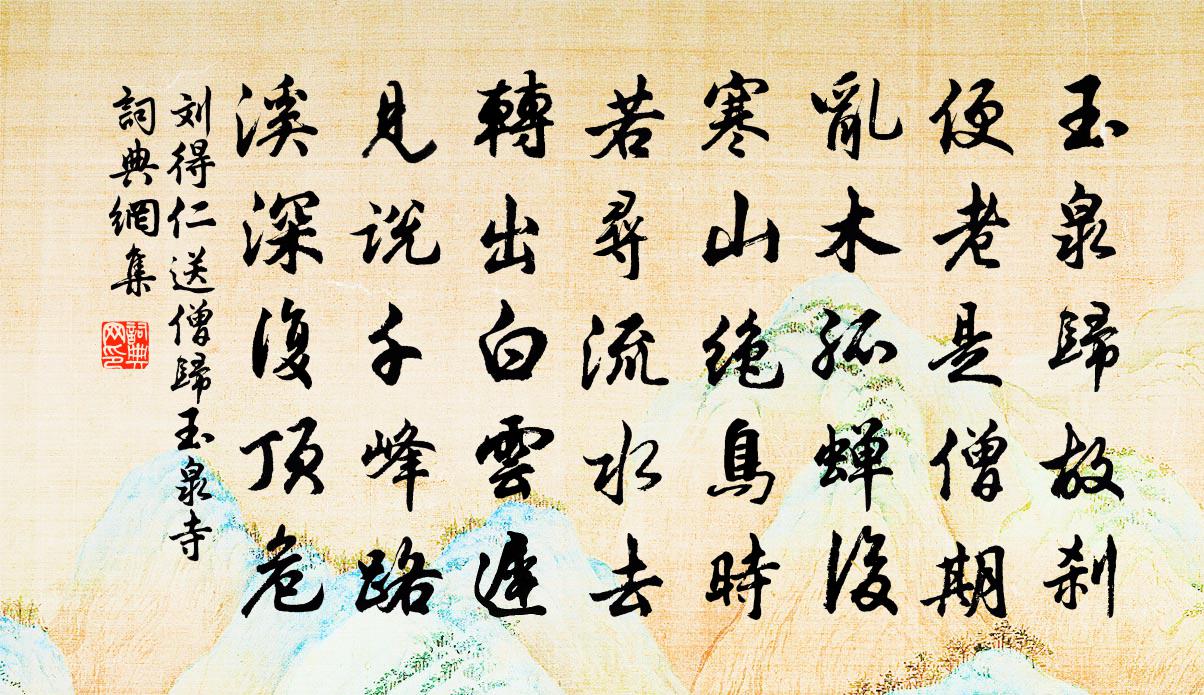 玉泉歸故刹
便老是僧期
亂木孤蝉後
寒山絶鳥時
若尋流水去
轉出白雲遲
見説千峰路
溪深復頂危
刘得仁送僧歸玉泉寺
詞典網集
詞典
网印